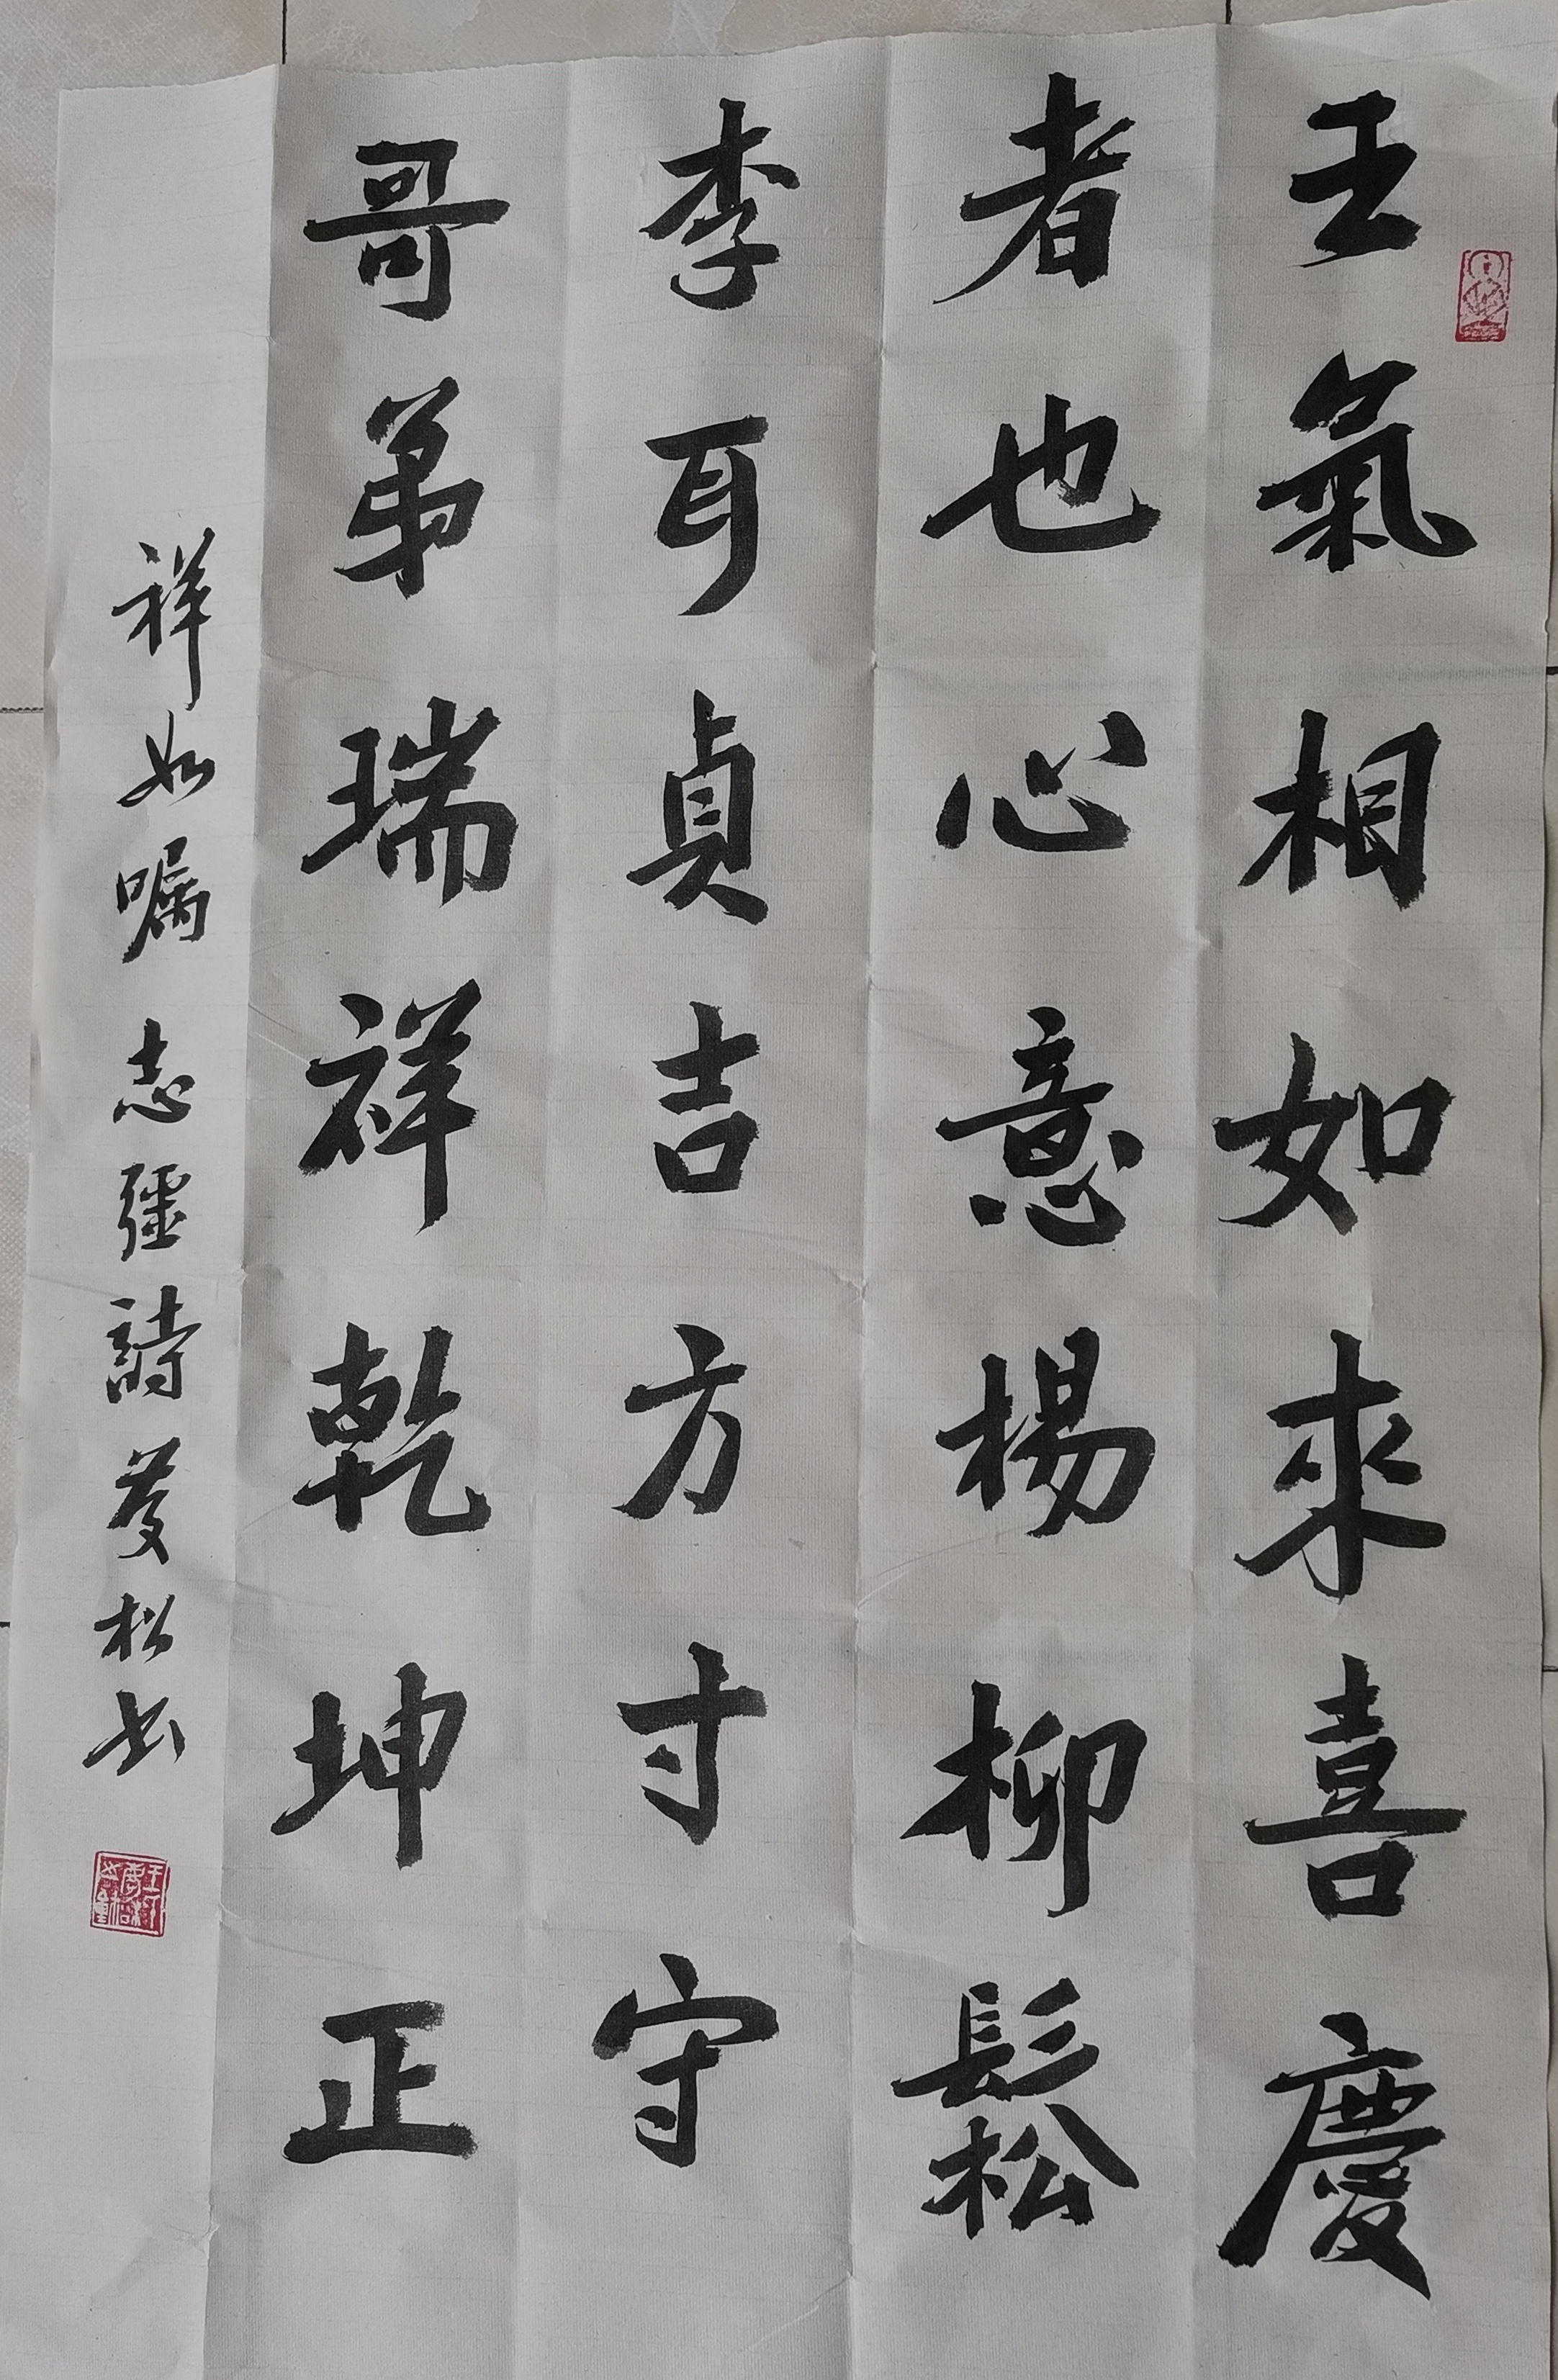 王氣相如來喜慶
者也心意楊柳鬆
李耳貞吉方寸守
哥弟瑞祥乾坤正
祥如嘱志彊詩慶松书